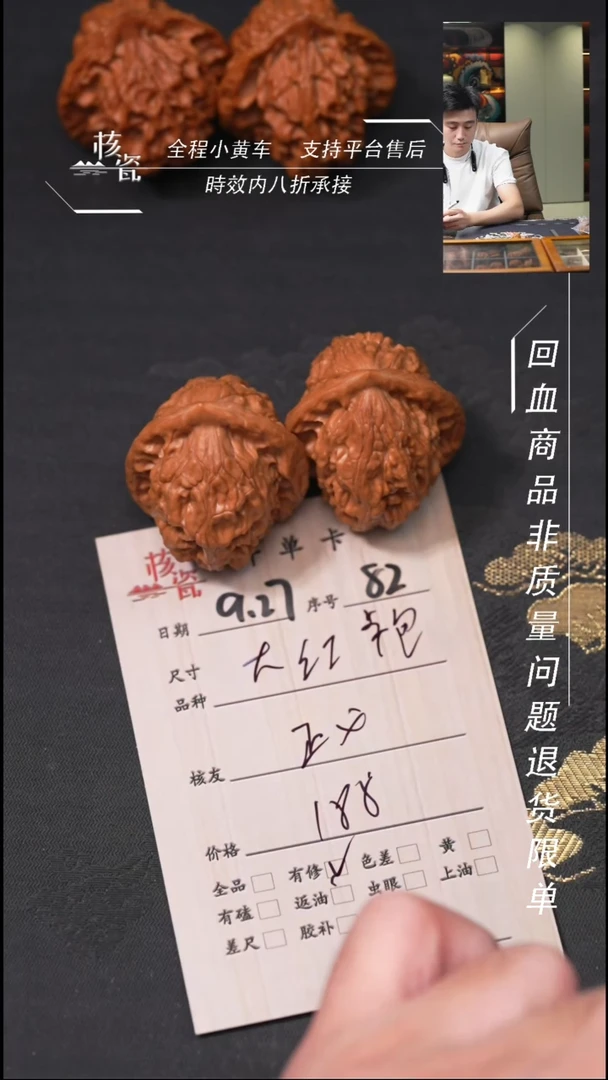 核瓷
全程小黄车 支持平台售后
時效内八折承接
回血商品非质量问题退货限单
核瓷 单卡
日期 9.27 序号 82
尺寸 大红袍
品种
核友
价格 188
全品 有修 色差 黄
有磕 返油 虫眼 上油
差尺 胶补